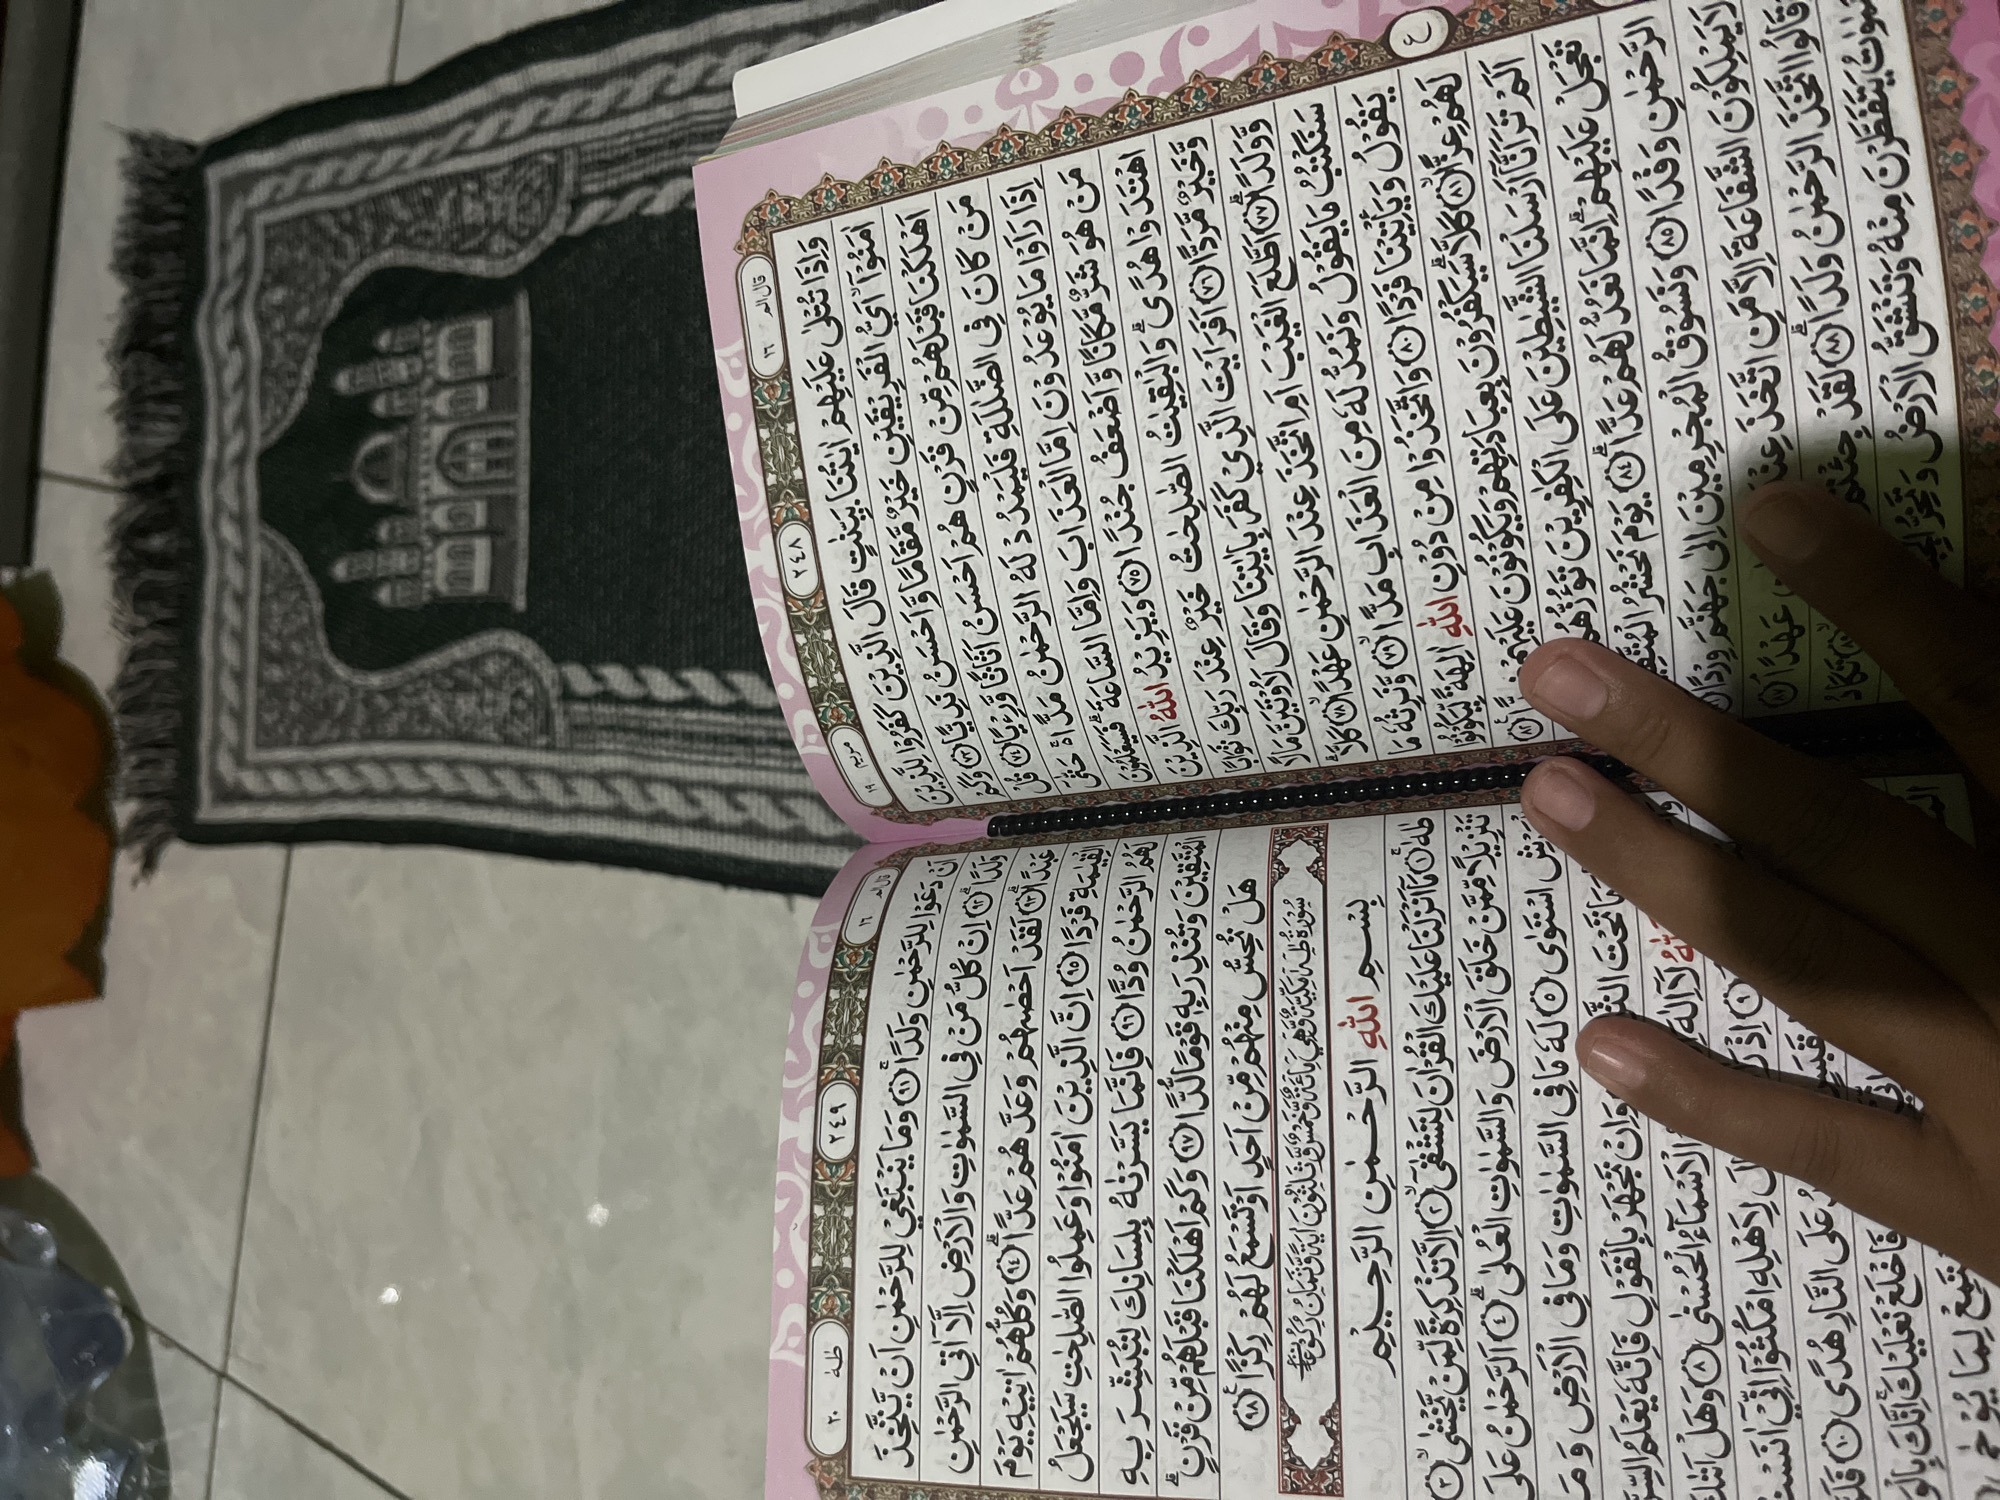 ١٦ قال الم
٢٤٨
مريم ١٩
وَاِذَا تُتْلٰى عَلَيْهِمْ اٰيٰتُنَا بَيِّنٰتٍ قَالَ الَّذِيْنَ كَفَرُوْا لِلَّذِيْنَ
اٰمَنُوْٓا اَيُّ الْفَرِيْقَيْنِ خَيْرٌ مَّقَامًا وَّاَحْسَنُ نَدِيًّا ٧٣ وَكَمْ
اَهْلَكْنَا قَبْلَهُمْ مِّنْ قَرْنٍ هُمْ اَحْسَنُ اَثَاثًا وَّرِءْيًا ٧٤ قُلْ
مَنْ كَانَ فِى الضَّلٰلَةِ فَلْيَمْدُدْ لَهُ الرَّحْمٰنُ مَدًّا ەۚ حَتّٰٓى
اِذَا رَاَوْا مَا يُوْعَدُوْنَ اِمَّا الْعَذَابَ وَاِمَّا السَّاعَةَ ۗ فَسَيَعْلَمُوْنَ
مَنْ هُوَ شَرٌّ مَّكَانًا وَّاَضْعَفُ جُنْدًا ٧٥ وَيَزِيْدُ اللّٰهُ الَّذِيْنَ
اهْتَدَوْا هُدًى ۗ وَالْبٰقِيٰتُ الصّٰلِحٰتُ خَيْرٌ عِنْدَ رَبِّكَ ثَوَابًا
وَّخَيْرٌ مَّرَدًّا ٧٦ اَفَرَاَيْتَ الَّذِيْ كَفَرَ بِاٰيٰتِنَا وَقَالَ لَاُوْتَيَنَّ مَالًا
وَّوَلَدًا ۗ ٧٧ اَطَّلَعَ الْغَيْبَ اَمِ اتَّخَذَ عِنْدَ الرَّحْمٰنِ عَهْدًا ۙ ٧٨ كَلَّا ۗ
سَنَكْتُبُ مَا يَقُوْلُ وَنَمُدُّ لَهٗ مِنَ الْعَذَابِ مَدًّا ۙ ٧٩ وَّنَرِثُهٗ مَا
يَقُوْلُ وَيَأْتِيْنَا فَرْدًا ٨٠ وَاتَّخَذُوْا مِنْ دُوْنِ اللّٰهِ اٰلِهَةً لِّيَكُوْنُوْا
لَهُمْ عِزًّا ۙ ٨١ كَلَّا ۗ سَيَكْفُرُوْنَ بِعِبَادَتِهِمْ وَيَكُوْنُوْنَ عَلَيْهِمْ ٨٢
ع
اَلَمْ تَرَ اَنَّآ اَرْسَلْنَا الشَّيٰطِيْنَ عَلَى الْكٰفِرِيْنَ تَؤُزُّهُمْ
تَعْجَلْ عَلَيْهِمْ ۗ اِنَّمَا نَعُدُّ لَهُمْ عَدًّا ۗ ٨٤ يَوْمَ نَحْشُرُ
الرَّحْمٰنِ وَفْدًا ٨٥ وَنَسُوْقُ الْمُجْرِمِيْنَ اِلٰى جَهَنَّمَ وِرْدًا
لَا يَمْلِكُوْنَ الشَّفَاعَةَ اِلَّا مَنِ اتَّخَذَ عَهْدًا ٨٧
وَقَالُوا اتَّخَذَ الرَّحْمٰنُ وَلَدًا ۗ ٨٨ لَقَدْ تَكَادُ
السَّمٰوٰتُ يَتَفَطَّرْنَ مِنْهُ وَتَنْشَقُّ الْاَرْضُ وَتَخِرُّ
١٦ قال الم
٢٤٩
طٰهٰ ٢٠
اَنْ دَعَوْا لِلرَّحْمٰنِ وَلَدًا ٩١ وَمَا يَنْبَغِيْ لِلرَّحْمٰنِ اَنْ يَّتَّخِذَ
وَلَدًا ۗ ٩٢ اِنْ كُلُّ مَنْ فِى السَّمٰوٰتِ وَالْاَرْضِ اِلَّآ اٰتِى الرَّحْمٰنِ
عَبْدًا ۗ ٩٣ لَقَدْ اَحْصٰىهُمْ وَعَدَّهُمْ عَدًّا ۗ ٩٤ وَكُلُّهُمْ اٰتِيْهِ يَوْمَ
الْقِيٰمَةِ فَرْدًا ٩٥ اِنَّ الَّذِيْنَ اٰمَنُوْا وَعَمِلُوا الصّٰلِحٰتِ سَيَجْعَلُ
لَهُمُ الرَّحْمٰنُ وُدًّا ٩٦ فَاِنَّمَا يَسَّرْنٰهُ بِلِسَانِكَ لِتُبَشِّرَ بِهِ
الْمُتَّقِيْنَ وَتُنْذِرَ بِهٖ قَوْمًا لُّدًّا ٩٧ وَكَمْ اَهْلَكْنَا قَبْلَهُمْ مِّنْ قَرْنٍ ۗ
هَلْ تُحِسُّ مِنْهُمْ مِّنْ اَحَدٍ اَوْ تَسْمَعُ لَهُمْ رِكْزًا ٩٨
سُوْرَةُ طٰهٰ مَكِّيَّةٌ وَّهِيَ مِائَةٌ وَّخَمْسٌ وَّثَلٰثُوْنَ اٰيَةً وَّثَمَانِ رُكُوْعَاتٍ
بِسْمِ اللّٰهِ الرَّحْمٰنِ الرَّحِيْمِ
طٰهٰ ١ مَآ اَنْزَلْنَا عَلَيْكَ الْقُرْاٰنَ لِتَشْقٰٓى ۙ ٢ اِلَّا تَذْكِرَةً لِّمَنْ يَّخْشٰى ۙ ٣
تَنْزِيْلًا مِّمَّنْ خَلَقَ الْاَرْضَ وَالسَّمٰوٰتِ الْعُلٰى ۗ ٤ اَلرَّحْمٰنُ عَلَى
الْعَرْشِ اسْتَوٰى ٥ لَهٗ مَا فِى السَّمٰوٰتِ وَمَا فِى الْاَرْضِ وَمَا
وَمَا تَحْتَ الثَّرٰى وَاِنْ تَجْهَرْ بِالْقَوْلِ فَاِنَّهٗ يَعْلَمُ السِّرَّ
لَآ اِلٰهَ الْاَسْمَاۤءُ الْحُسْنٰى ٨ وَهَلْ اَتٰىكَ
٩ اِذْ لِاَهْلِهِ امْكُثُوْٓا اِنِّيْٓ اٰنَسْتُ
بِقَبَسٍ عَلَى النَّارِ هُدًى ١٠
فَاخْلَعْ نَعْلَيْكَ ۚ اِنَّكَ بِالْوَادِ
لِمَا يُوْحٰى